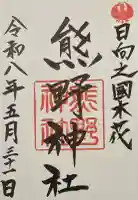 日向之國木花
熊野神社
令和八年五月三十一日